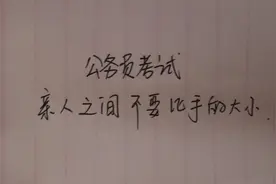 公务员考试
亲人之间不要比手的大小.